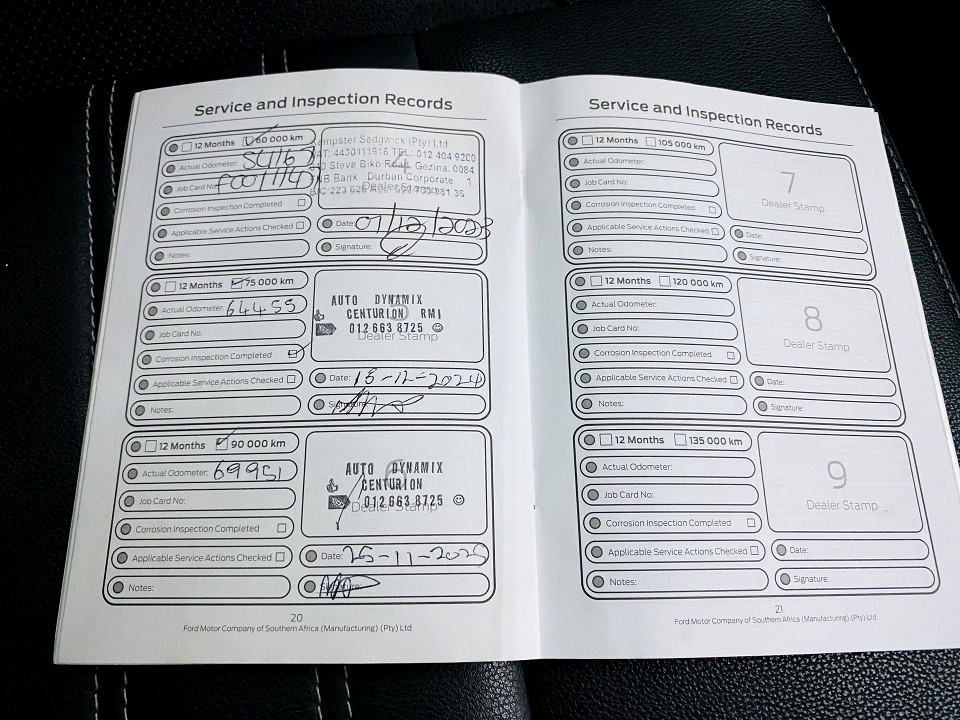 Service and Inspection Records
12 Months 60 000 km
Actual Odometer: 54167
Job Card No:
Corrosion Inspection Completed
Applicable Service Actions Checked
Notes:
Kempster Sedgwick (Pty) Ltd
VAT: 4430111916 TEL: 012 404 9200
Steve Biko Road, Gezina, 0084
FNB Bank Durban Corporate
4
Dealer Stamp
Date: 07/12/2023
Signature:
12 Months 75 000 km
Actual Odometer: 64455
Job Card No:
Corrosion Inspection Completed
Applicable Service Actions Checked
Notes:
AUTO DYNAMIX
CENTURION RMI
012 663 8725
5
Dealer Stamp
Date: 18-12-2024
Signature:
12 Months 90 000 km
Actual Odometer: 69951
Job Card No:
Corrosion Inspection Completed
Applicable Service Actions Checked
Notes:
AUTO DYNAMIX
CENTURION
012 663 8725
6
Dealer Stamp
Date: 25-11-2025
Signature:
20
Ford Motor Company of Southern Africa (Manufacturing) (Pty) Ltd
Service and Inspection Records
12 Months 105 000 km
Actual Odometer:
Job Card No:
Corrosion Inspection Completed
Applicable Service Actions Checked
Notes:
7
Dealer Stamp
Date:
Signature:
12 Months 120 000 km
Actual Odometer:
Job Card No:
Corrosion Inspection Completed
Applicable Service Actions Checked
Notes:
8
Dealer Stamp
Date:
Signature:
12 Months 135 000 km
Actual Odometer:
Job Card No:
Corrosion Inspection Completed
Applicable Service Actions Checked
Notes:
9
Dealer Stamp
Date:
Signature:
21
Ford Motor Company of Southern Africa (Manufacturing) (Pty) Ltd